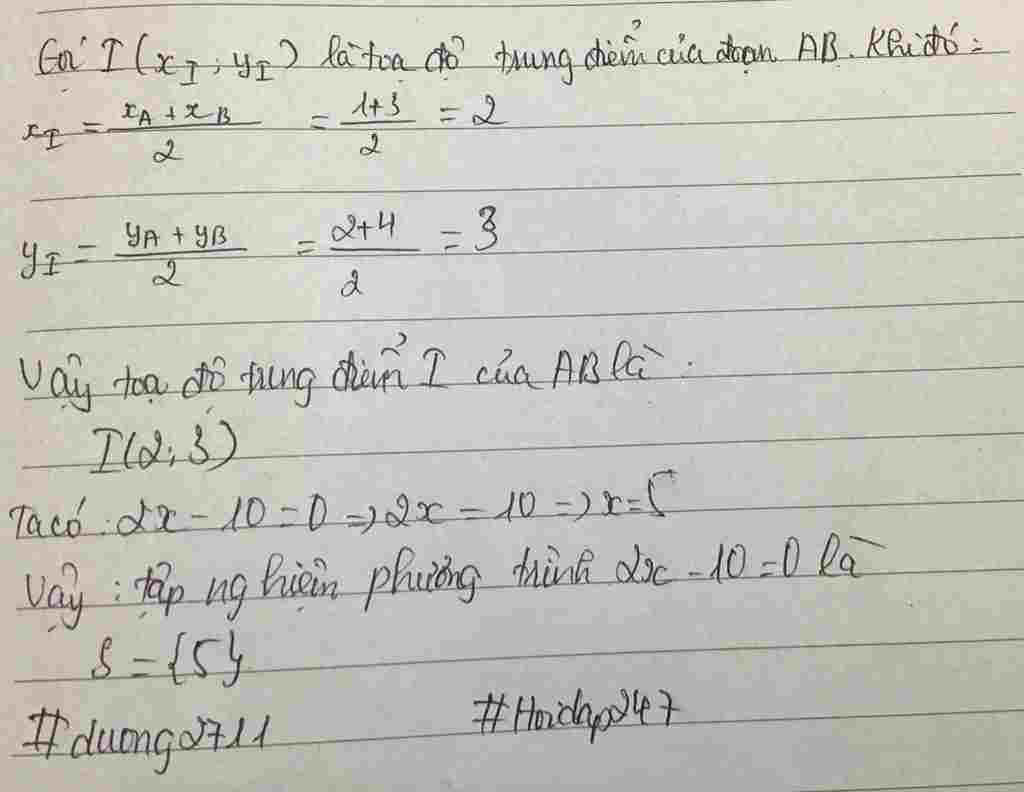 Gọi I(x_I; y_I) là toạ độ trung điểm của đoạn AB. Khi đó:
x_I = (x_A + x_B)/2 = (1+3)/2 = 2
y_I = (y_A + y_B)/2 = (2+4)/2 = 3
Vậy toạ độ trung điểm I của AB là:
I(2; 3)
Ta có: 2x - 10 = 0 => 2x = 10 => x = 5
Vậy: tập nghiệm phương trình 2x - 10 = 0 là
S = {5}
#duong2711 #Hoidap247